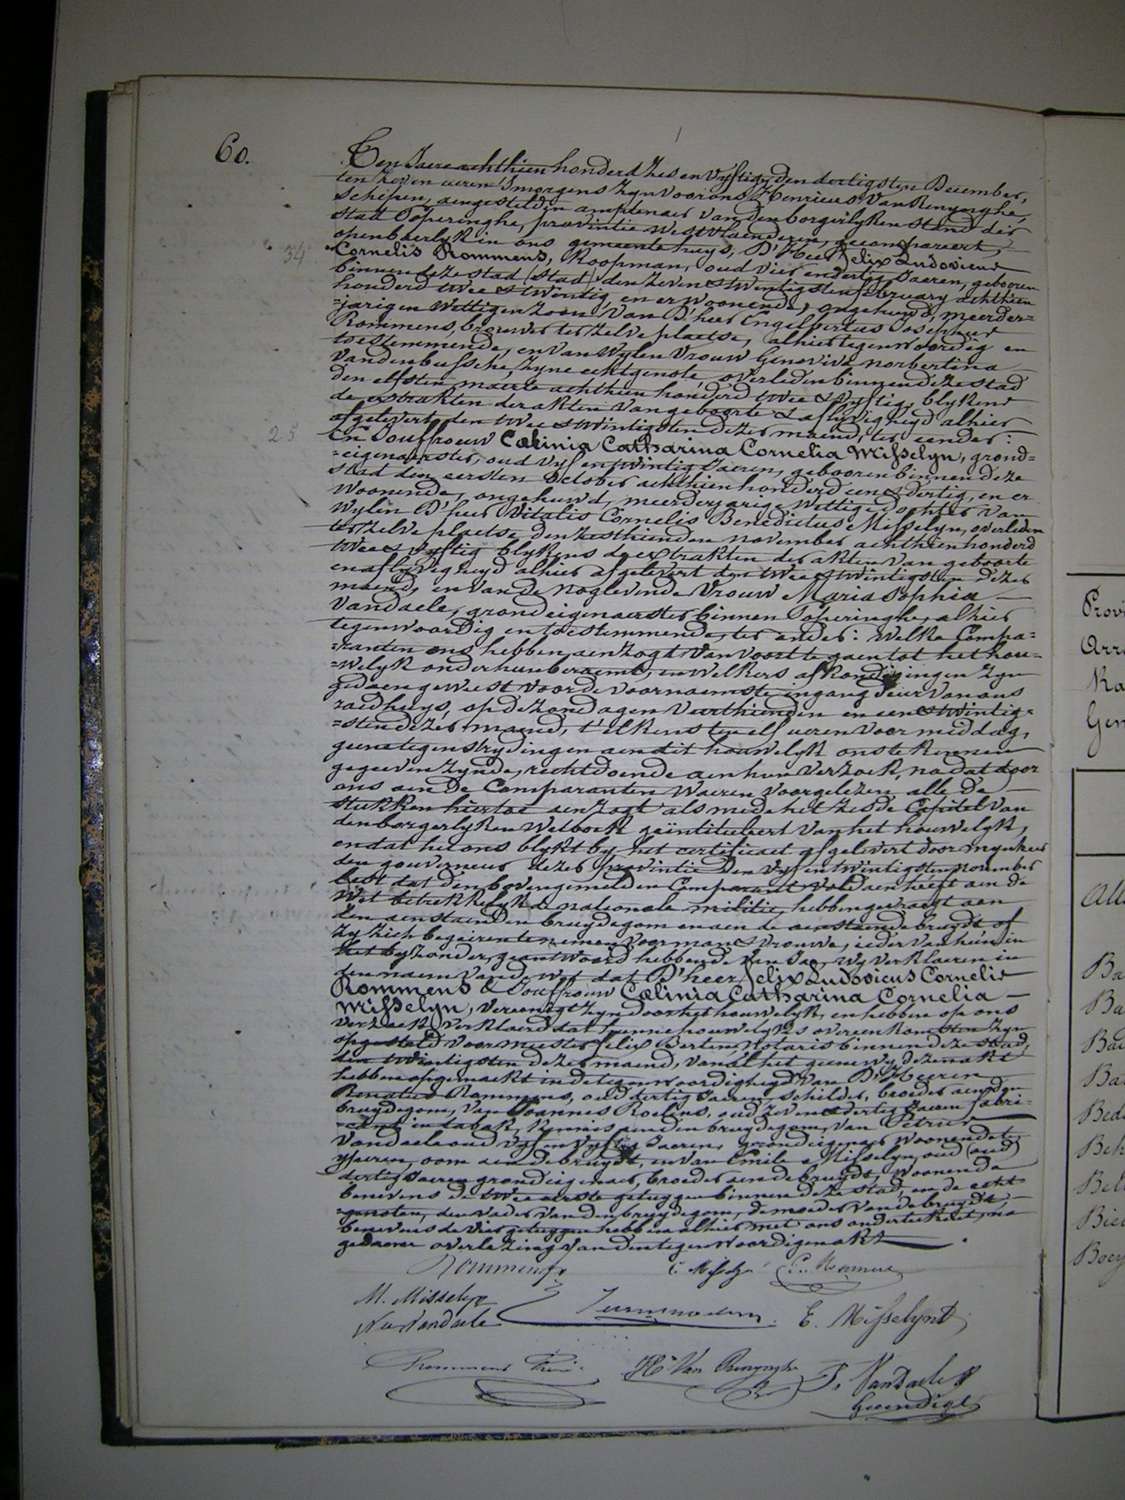 60.
Den Jaere achthien honderd zes en vyftig, den dertigsten December,
ten zeven ueren 'smorgens zyn voor ons Henricus Van Renynghe,
schepen, aengestelden amptenaer van den borgerlyken stand der
stad Poperinghe, provintie Westvlaenderen, gecompareert,
openbaerlyk in ons gemeentehuys, D'Heer Felix Ludovicus
34 Cornelis Rommens, Koopman, oud vier en dertig Jaeren, gebooren
binnen deze stad (stad) den zeven & twintigsten february achthien
honderd twee & twintig, en er woonende, ongehuwd, meerder=
=jarigen wettigen zoon van D'heer Engelbertus Josephus
Rommens, brouwer ter zelve plaetse, alhier tegenwoordig en
toestemmende, en van wylen Vrouw Genoviva norbertina
Vandenbussche, zyne echtgenote overleden binnen deze stad
den elfsten maerte achthien honderd twee & vyftig, blykens
de extrakten der akten van geboorte & aflyvigheyd alhier
afgelevert den twee & twintigsten dezer maend, ter eender:
25 En Jouffrouw Cælinia Catharina Cornelia Misselyn, grond=
=eigenaerster, oud vyf en twintig Jaeren, gebooren binnen deze
stad den eersten October achthien honderd een & dertig, en er
woonende, ongehuwd, meerderjarige wettige dochter van
wylen D'heer Vitalis Cornelis Benedictus Misselyn, overleden
ter zelve plaetse den zesthienden november achthien honderd
twee & vyftig blykens de extrakten der akten van geboorte
en aflyvigheyd alhier afgelevert den twee & twintigsten dezer
maend, en van de noglevende Vrouw Maria Sophia
Vandaele, grondeigenaerster binnen Poperinghe, alhier
tegenwoordig en toestemmende, ter ander: Welke Compa=
=ranten ons hebben aenzogt van voort te gaen tot het hou=
=welyk onder hun beraemt, en welkers afkondigingen zyn
gedaen geweest voor de voornaemste ingang deur van ons
raedhuys, op de zondagen veerthienden en een & twintig=
=sten dezer maend, t'elkens ten elf ueren voor middag,
geene tegenstrydingen aen dit houwelyk ons te kennen
gegeven zynde, rechtdoende aen hun verzoek, na dat door
ons aen de Comparanten waeren voorgelezen alle de
stukken hiertoe aenzogt als mede het zesde Capitel van
den borgerlyken Wetboek geintituleert van het houwelyk,
en dat het ons blykt by het certificaet afgelevert door mynheer
den gouverneur dezer provintie den vyf en twintigsten november
lest dat den bovengemelden Comparant voldaen heeft aen de
Wet betrekkelyk de nationale militie, hebben gevraegt aen
den aenstaenden bruydegom en aen de aenstaende bruydt of
zy zich begeiren te nemen voor man & vrouwe, ieder van hun in
het byzonder, geantwoord hebbende van Ja, wy verklaeren in
den naem van de wet dat D'heer Felix Ludovicus Cornelis
Rommens & Jouffrouw Cælinia Catharina Cornelia
Misselyn, vereenigt zyn door het houwelyk, en hebben op ons
verzoek verklaerd dat hunne houwelyks overeenkomsten zyn
opgesteld voor meester Felix Berten, notaris binnen deze stad,
den twintigsten dezer maend, van al het geene wy deze makt
hebben opgemaekt in de tegenwoordigheyd van D'Heeren
Renatus Rommens, oud dertig Jaeren, schilder, broeder aen den
bruydegom, van Joannes Roelens, oud zeven & dertig Jaeren fabri=
=cant in tabak, Kennis aen den bruydegom, van Petrus
Vandaele oud vyf en vyftig Jaeren, grondeigenaer woonende te
Yperen, oom aen de bruydt, en van Emile Misselyn, oud (oud)
dertig Jaeren grondeigenaer, broeder aen de bruydt, woonende
benevens de twee eerste getuygen binnen deze stad, en de echt
=genoten, den vader van den bruydegom, de moeder van de bruydt,
benevens de vier getuygen hebben alhier met ons onderteekent, na
gedaene overlezing van den tegenwoordigen akt
Rommens C. Misselyn E. Rommens
M. Misselyn
Née Vandaele E. Misselyn
Rommens René H. Van Renynghe P. VanDaele
Provi
Arro
Ka
Gem
Ba
Ba
Ba
Bede
Beh
Bel
Boey